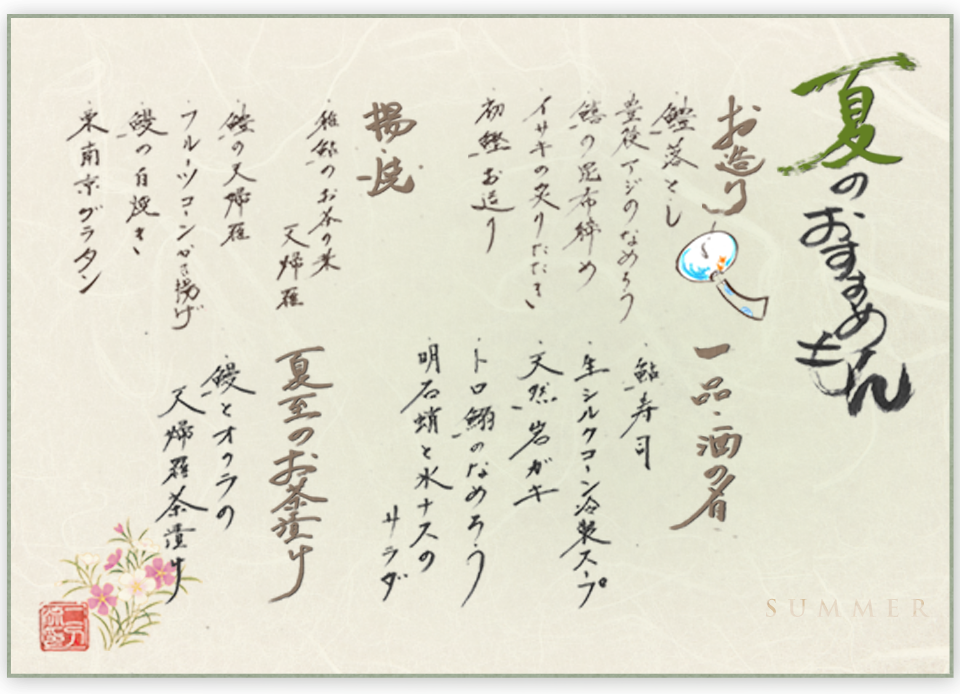 夏のおすすめもん
お造り
鱧落とし
豊後アジのなめろう
鱚の昆布締め
イサキの炙りたたき
初鰹お造り
揚・焼
稚鮎のお茶の葉
天婦羅
鱧の天婦羅
フルーツコーンかき揚げ
鰻の白焼き
東南京グラタン
一品・酒の肴
鮎寿司
生シルクコーン冷製スープ
天然岩ガキ
トロ鰯のなめろう
明石蛸と水ナスの
サラダ
夏至のお茶漬け
鰻とオクラの
天婦羅茶漬け
SUMMER